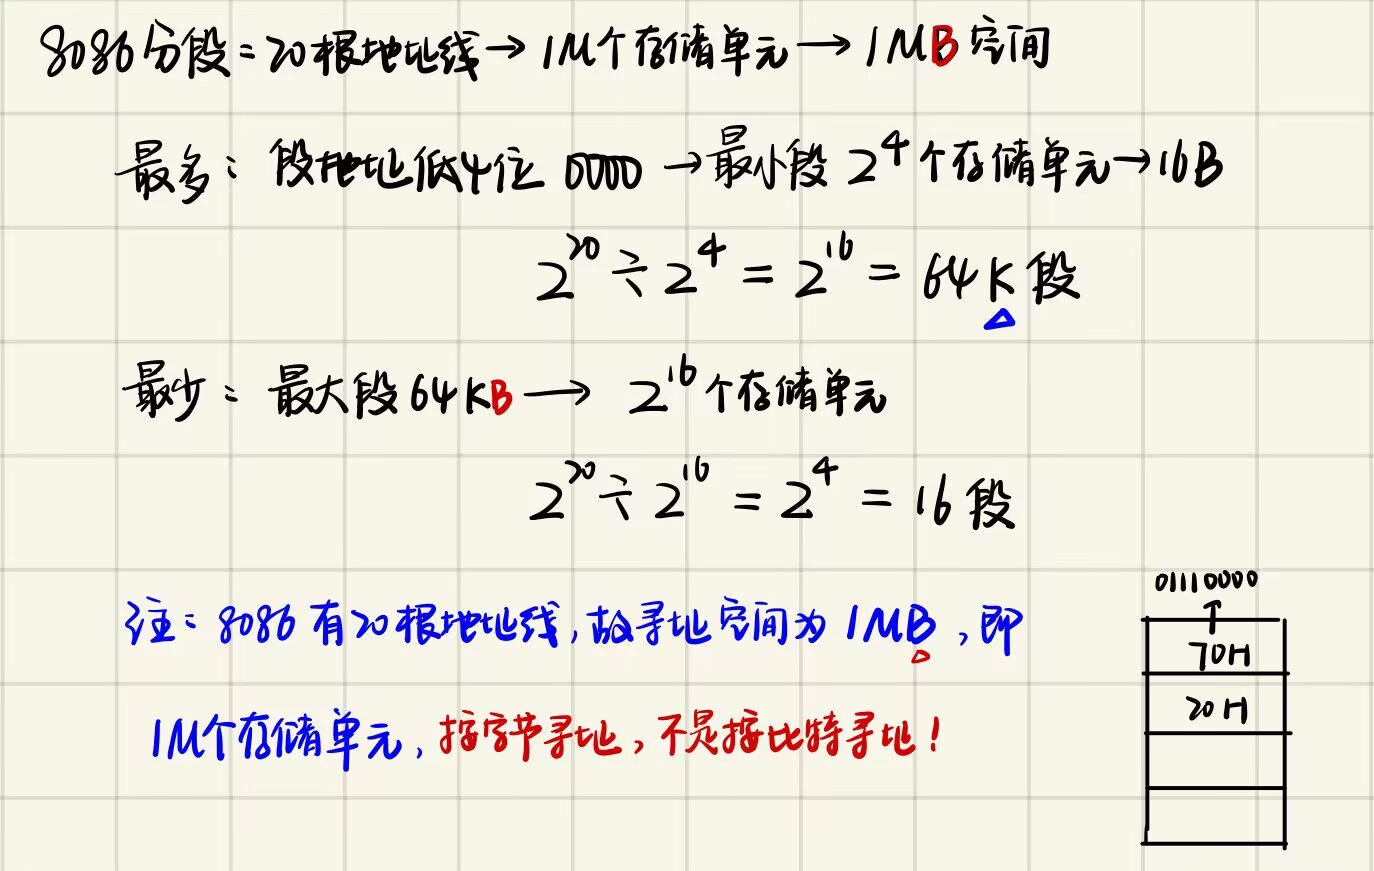 8086分段=20根地址线→1M个存储单元→1MB空间
最多：段地址低4位 0000→最小段 2^4个存储单元→16B
2^20÷2^4=2^16=64K段
最少：最大段64KB→2^16个存储单元
2^20÷2^16=2^4=16段
注：8086有20根地址线,故寻址空间为1MB,即
1M个存储单元,按字节寻址,不是按比特寻址!
01110000
↑
70H
20H